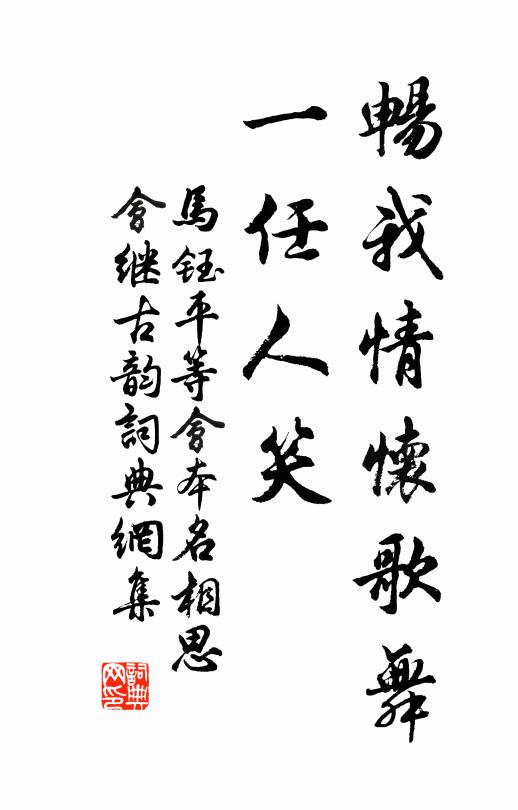 暢我情懷歌舞
一任人笑
馬鈺平等會本名相思
會继古韵詞典網集
詞典网印